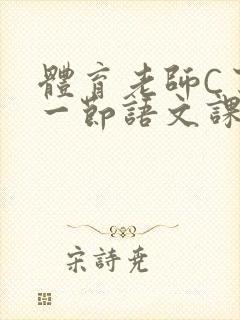 體育老師C
一節語文課
宋詩堯